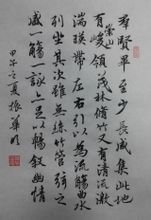 羣賢畢至少長咸集此地
有崇山峻領茂林修竹又有清流激
湍暎帶左右引以為流觴曲水
列坐其次雖無絲竹管弦之
盛一觴一詠亦足以暢叙幽情
甲午之夏振華